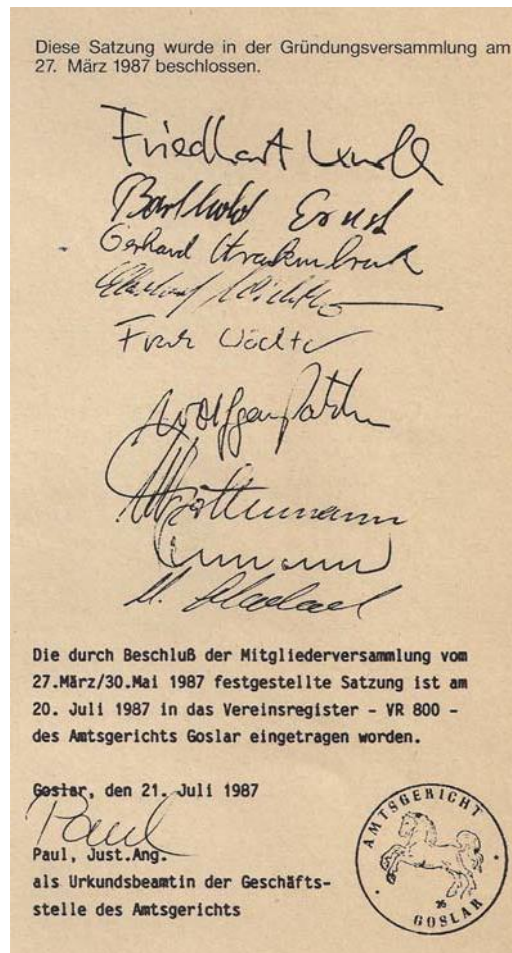 Diese Satzung wurde in der Gründungsversammlung am
27. März 1987 beschlossen.
Friedhart
Barthold Ernst
Gerhard
Frank Wächter
Wolfgang
M.
Die durch Beschluß der Mitgliederversammlung vom
27.März/30.Mai 1987 festgestellte Satzung ist am
20. Juli 1987 in das Vereinsregister - VR 800 -
des Amtsgerichts Goslar eingetragen worden.
Goslar, den 21. Juli 1987
Paul
Paul, Just.Ang.
als Urkundsbeamtin der Geschäfts-
stelle des Amtsgerichts
AMTSGERICHT
GOSLAR